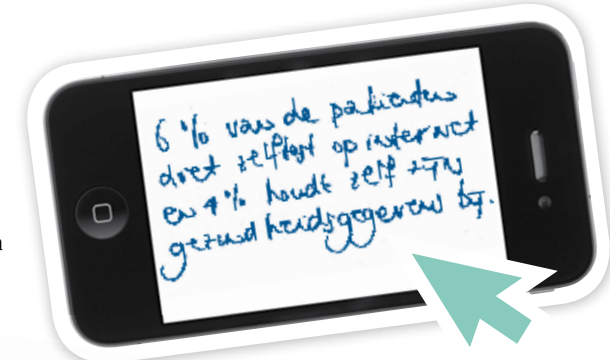 6 % van de patienten
doet zelftest op internet
en 4% houdt zelf zijn
gezondheidsgegevens bij.
n